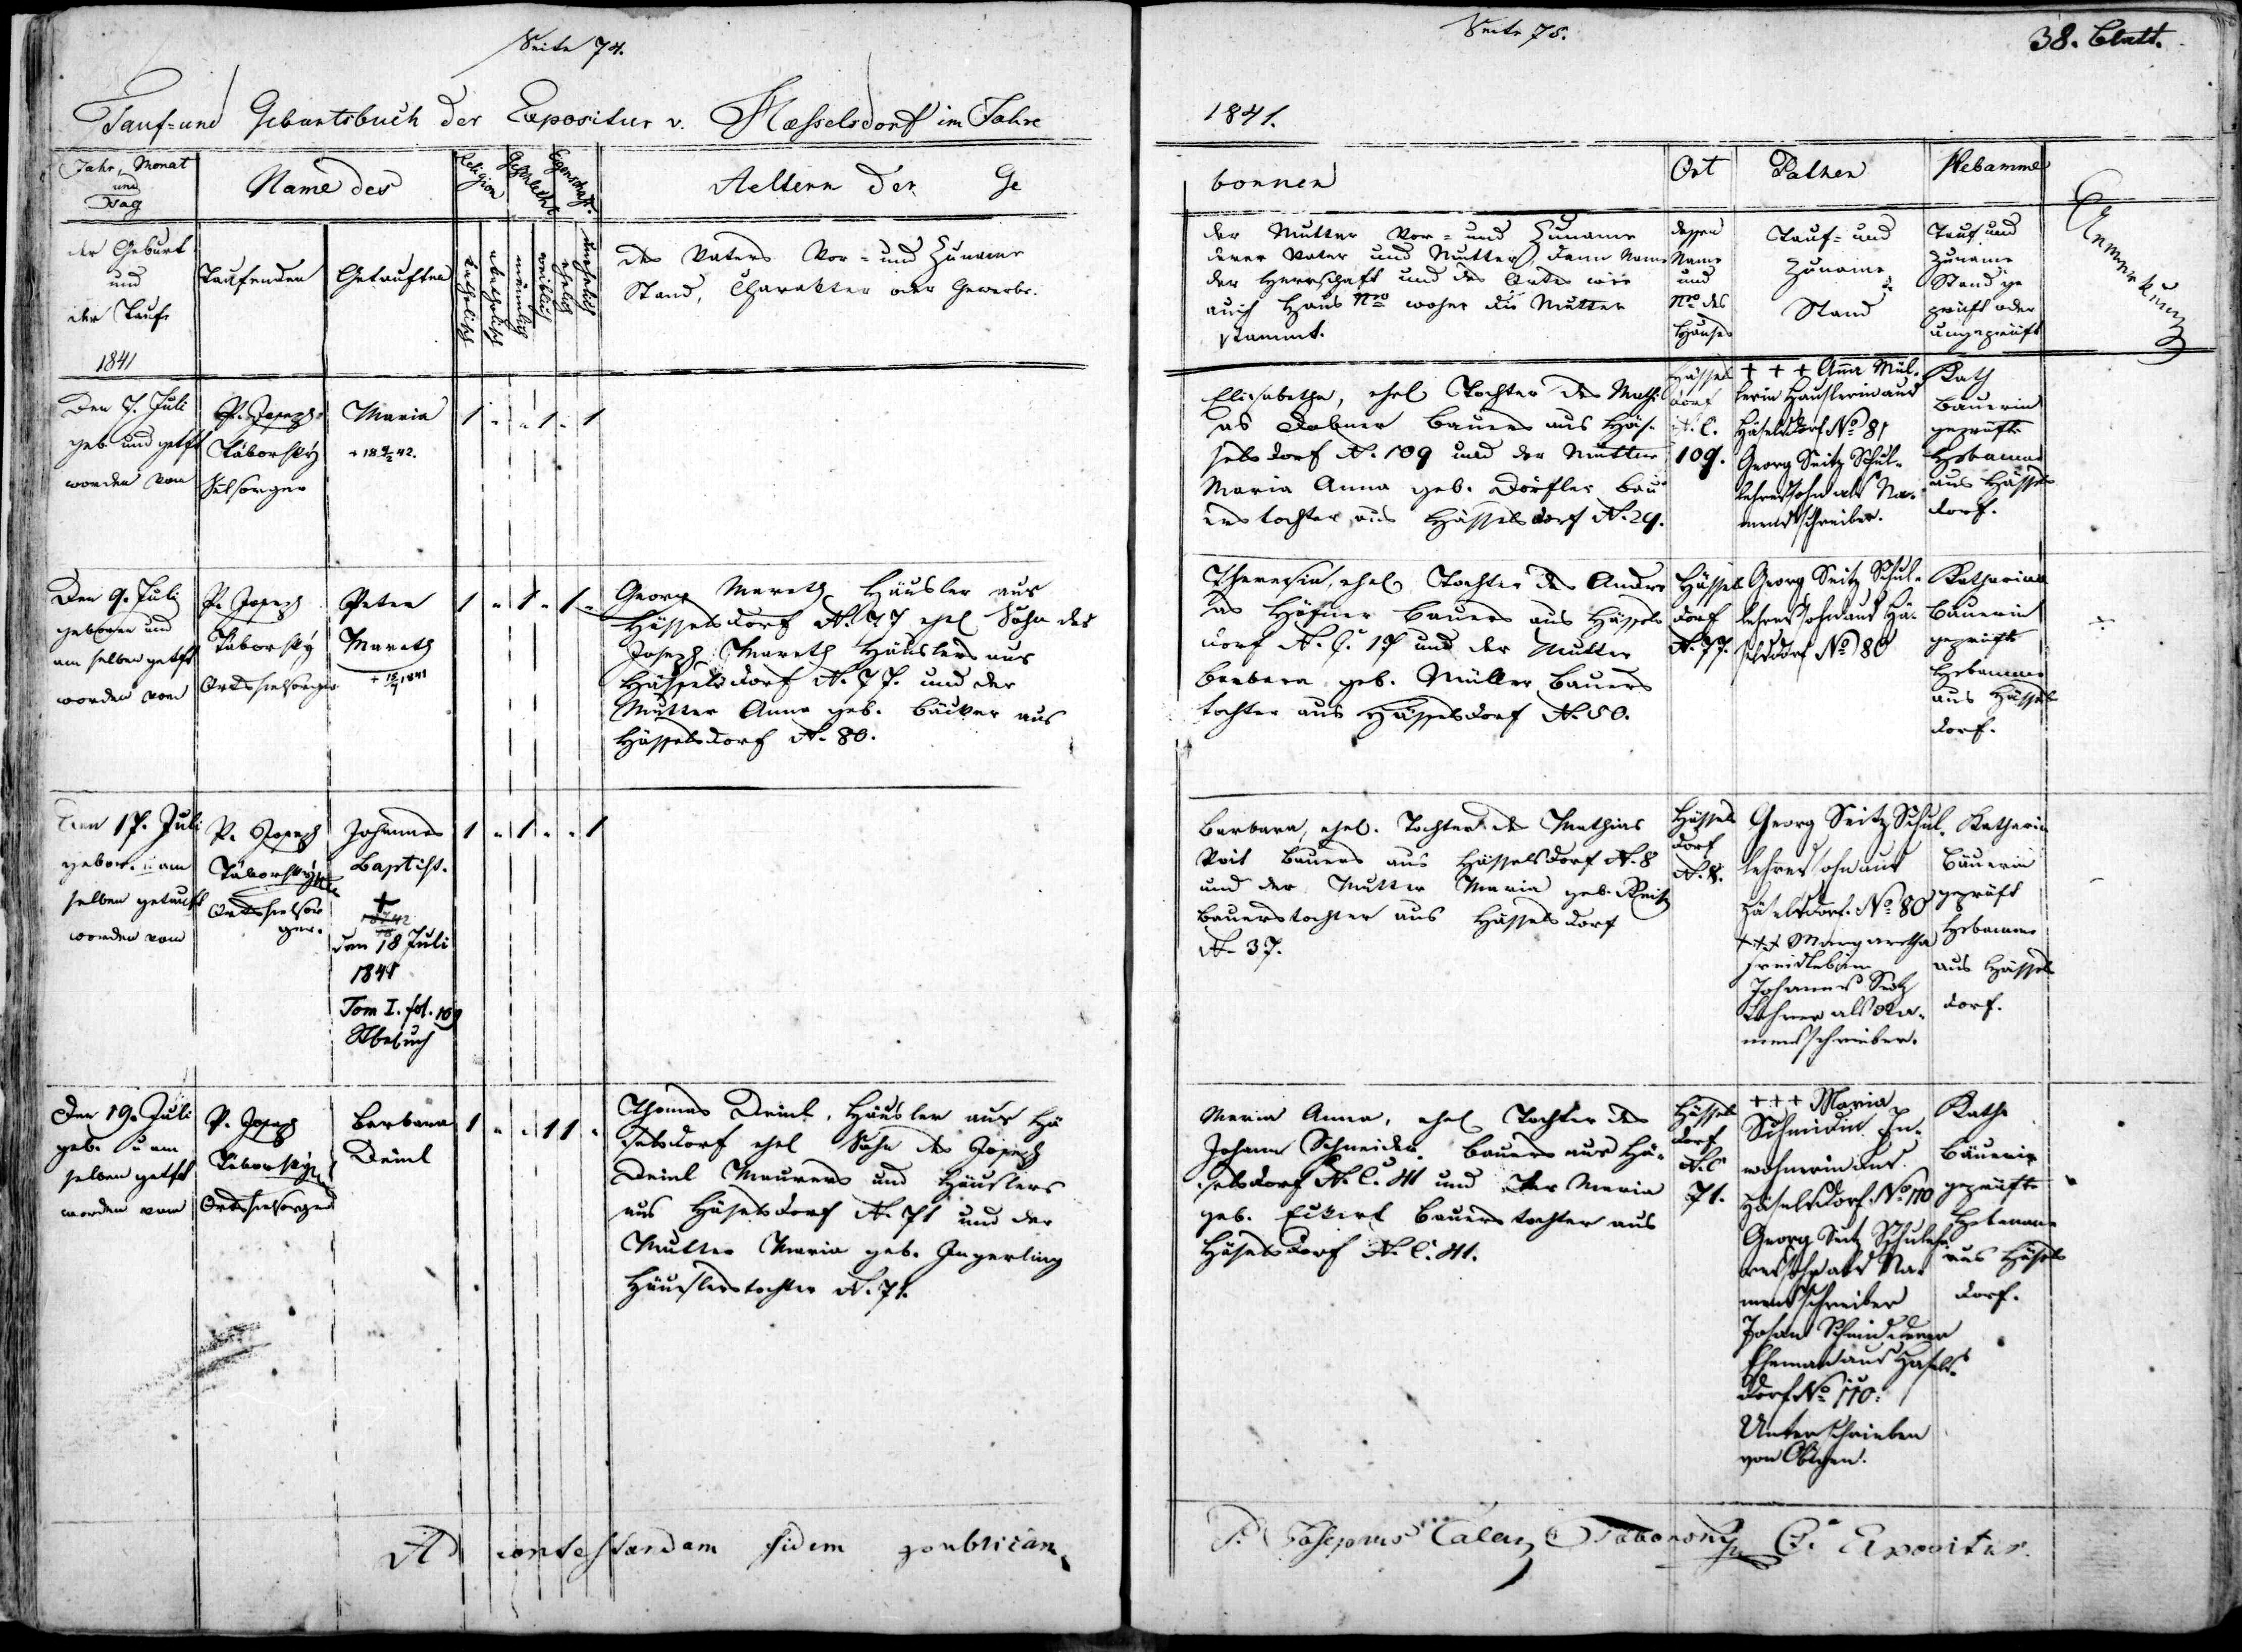 Seite 74.
Tauf= und Geburtsbuch der Expositur v. Hæsselsdorf im Jahre
Jahr, Monat
und
Tag
Name des
Religion
Geschlecht
Eigenschaft.
Aeltern der Ge
der Geburt
und
der Taufe
1841
Taufenden
Getauften
katholisch
akatholisch
männlich
weiblich
ehelich
unehelich
des Vaters Vor= und Zuname
Stand, Charakter oder Gewerbe.
Den 7. Juli
geb. und getft
worden von
P. Joseph
Táborský
Selsorger
Maria
1 1 1
Den 9. Juli
geboren und
am selben getft
worden vom
P. Joseph
Táborský
Ortsselsorger
Peter
Mareth
1 1 1
Georg Mareth Häusler aus
Hässelsdorf N. 77 ehel Sohn des
Joseph Mareth Häuslers aus
Hässelsdorf N. 77. und der
Mutter Anna geb. Bäcker aus
Hässelsdorf N. 80.
Den 17. Juli
gebor. u am
selben getauft
worden vom
P. Joseph
Táborský
Ortsselsor
ger.
Johannes
Baptist.
+
den 18 Juli
1841
Tom I. fol. 109
Stbebuch
1 1 1
Den 19. Juli
geb. u am
selben getft
worden vom
P. Joseph
Táborský
Ortsselsorger
Barbara
Deinl
1 1 1
Thomas Deinl, Häusler aus Hä
selsdorf ehel Sohn des Joseph
Deinl Maurers und Häuslers
aus Häselsdorf N. 71 und der
Mutter Maria geb. Ingerling
Häuslerstochter N. 71.
Ad contestandam fidem publicam
Seite 75.
38. Blatt.
1841.
bornen
Ort
Pathen
Hebamme
Anmerkung
der Mutter Vor= und Zuname
deren Vater und Mutter, dann Name
der Herrschaft und des Ortes wie
auch Haus Nro woher die Mutter
stammt.
dessen
Name
und
Nro des
Hauses
Tauf= und
Zuname
Stand
Tauf und
Zuname
Stand ge
prüft oder
ungeprüft
Elisabetha, ehel Tochter des Mathi
as Dobner Bauers aus Häs=
selsdorf N. 109 und der Mutter
Maria Anna geb. Dörfler Bau
erstochter aus Hässelsdorf N. 29.
Hässels
dorf
N. C.
109.
+ + + Anna Mül=
lerin Häuslerin aus
Häselsdorf No 81
Georg Seitz Schul=
lehrerssohn als Na=
mensschreiber.
Kath
Bäuerin
geprüfte
Hebamme
aus Hässels
dorf.
Theresia, ehel Tochter des Andre
as Höfner Bauers aus Hässels
dorf N. C. 17 und der Mutter
Barbara geb. Müller Bauers
tochter aus Hässelsdorf N. 50.
Hässels
dorf
N. 77.
Georg Seitz Schul=
lehrerssohn aus Hä=
selsdorf No 80
Katharina
Bäuerin
geprüfte
Hebamme
aus Hässels
dorf.
Barbara, ehel. Tochter des Mathias
Voit Bauers aus Hässelsdorf N. 8
und der Mutter Maria geb.
Bauerstochter aus Hässelsdorf
N. 37.
Hässels
dorf
N. 8.
Georg Seitz Schul=
lehrerssohn aus
Häselsdorf. No 80
+++ Margaretha
Johannes Seitz
Lehrer als Na=
mensschreiber.
Katharin
Bäuerin
geprüft
Hebamme
aus Hässels
dorf.
Maria Anna, ehel Tochter des
Johann Schneider Bauers aus Hä=
selsdorf N. C. 41 und der Maria
geb. Eckert Bauerstochter aus
Häselsdorf N. C. 41.
Hässels
dorf
N. C
71.
+++ Maria
Schmidin In=
wohnerin aus
Häselsdorf. No 110
Georg Seitz Schulleh=
rerssohn als Na=
mensschreiber
Johann
Ehemann aus Häsels=
dorf No 110.
Unterschrieben
von Obigen.
Kath
Bäuerin
geprüfte
Hebamme
aus Häsels
dorf.
P. Josephus Calas Táborský C. Expositus.